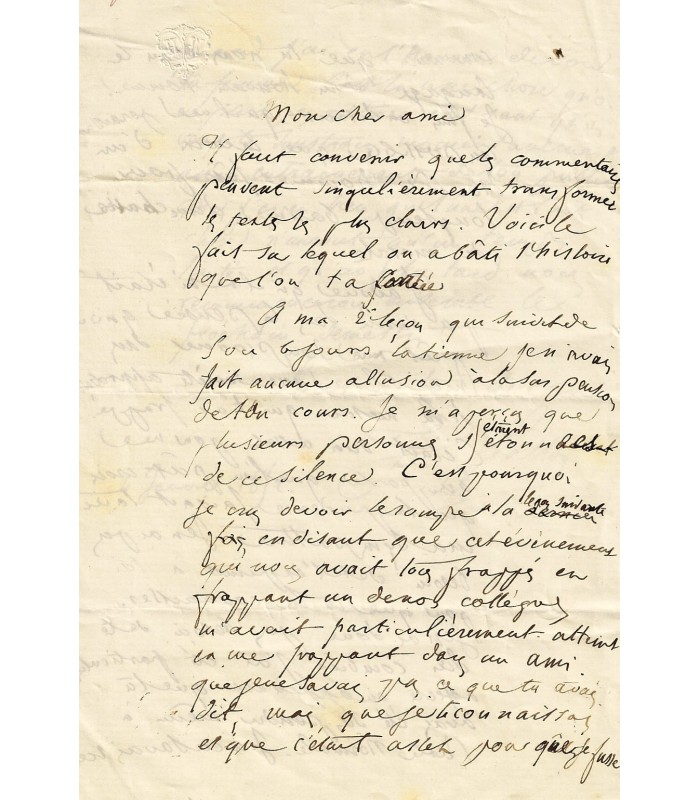 Mon cher ami
Il faut convenir que les commentaires
peuvent singulièrement transformer
les textes les plus clairs. Voici le
fait sur lequel on a bâti l'histoire
que l'on t'a
A ma 2e leçon qui suivit de
5 ou 6 jours la tienne je n'avais
fait aucune allusion à la suspension
de ton cours. Je m'aperçus que
plusieurs personnes s'étaient étonnées
de ce silence. C'est pourquoi
je crus devoir le rompre à la leçon suivante
en disant que cet événement
qui nous avait tous frappés en
frappant un de nos collègues
m'avait particulièrement atteint
en me frappant dans un ami
que je ne savais pas ce que tu avais
dit, mais que je te connaissais
et que c'était assez pour que je fusse